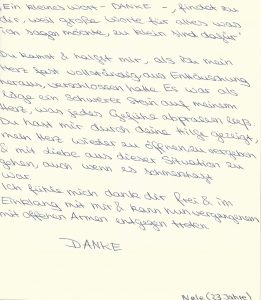 „Ein kleines Wort - DANKE - , findet zu
dir, weil große Worte für alles was
ich sagen möchte, zu klein sind dafür"
Du kamst & halfst mir, als ich mein
Herz fast vollständig aus Enttäuschung
heraus, verschlossen hatte. Es war als
läge ein schwerer Stein auf meinem
Herz, was jedes Gefühl abprallen ließ.
Du hast mir durch deine Hilfe gezeigt,
mein Herz wieder zu öffnen, zu vergeben
& mit Liebe aus dieser Situation zu
gehen, auch wenn es schmerzhaft
war.
Ich fühle mich dank dir frei & im
Einklang mit mir & kann nun vergangenem
mit offenen Armen entgegen treten
DANKE
Nele (23 Jahre)